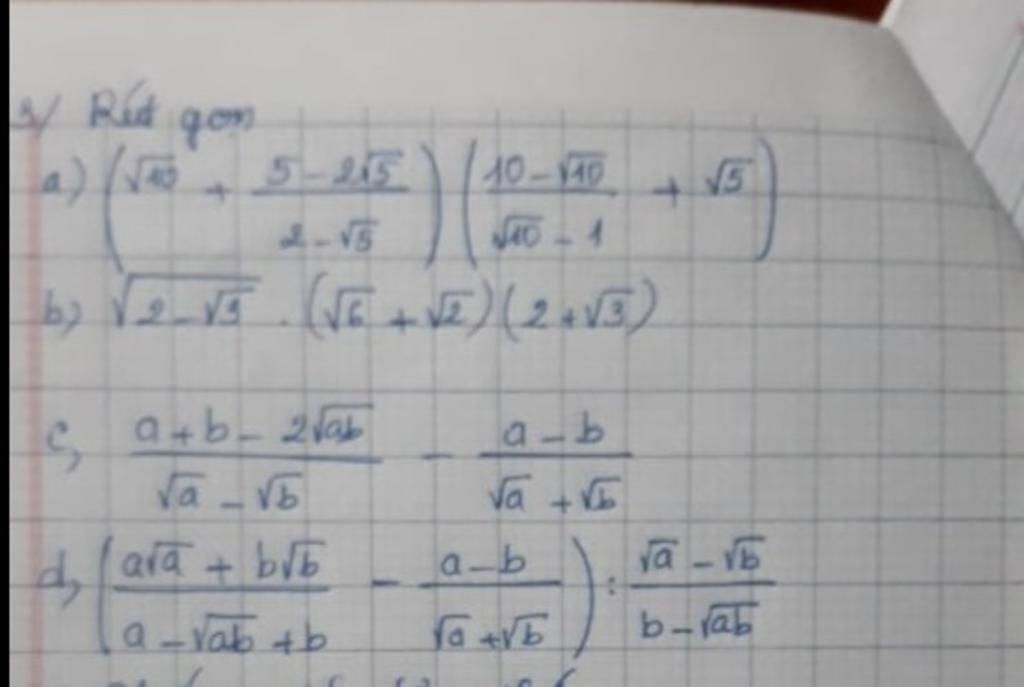 3/ Rút gọn
a) (√10 + (5 - 2√5)/(2 - √5)) ((10 - √10)/(√10 - 1) + √5)
b) √(2 - √3) . (√6 + √2)(2 + √3)
c, (a + b - 2√ab)/(√a - √b) - (a - b)/(√a + √b)
d, ((a√a + b√b)/(a - √ab + b) - (a - b)/(√a + √b)) : (√a - √b)/(b - √ab)